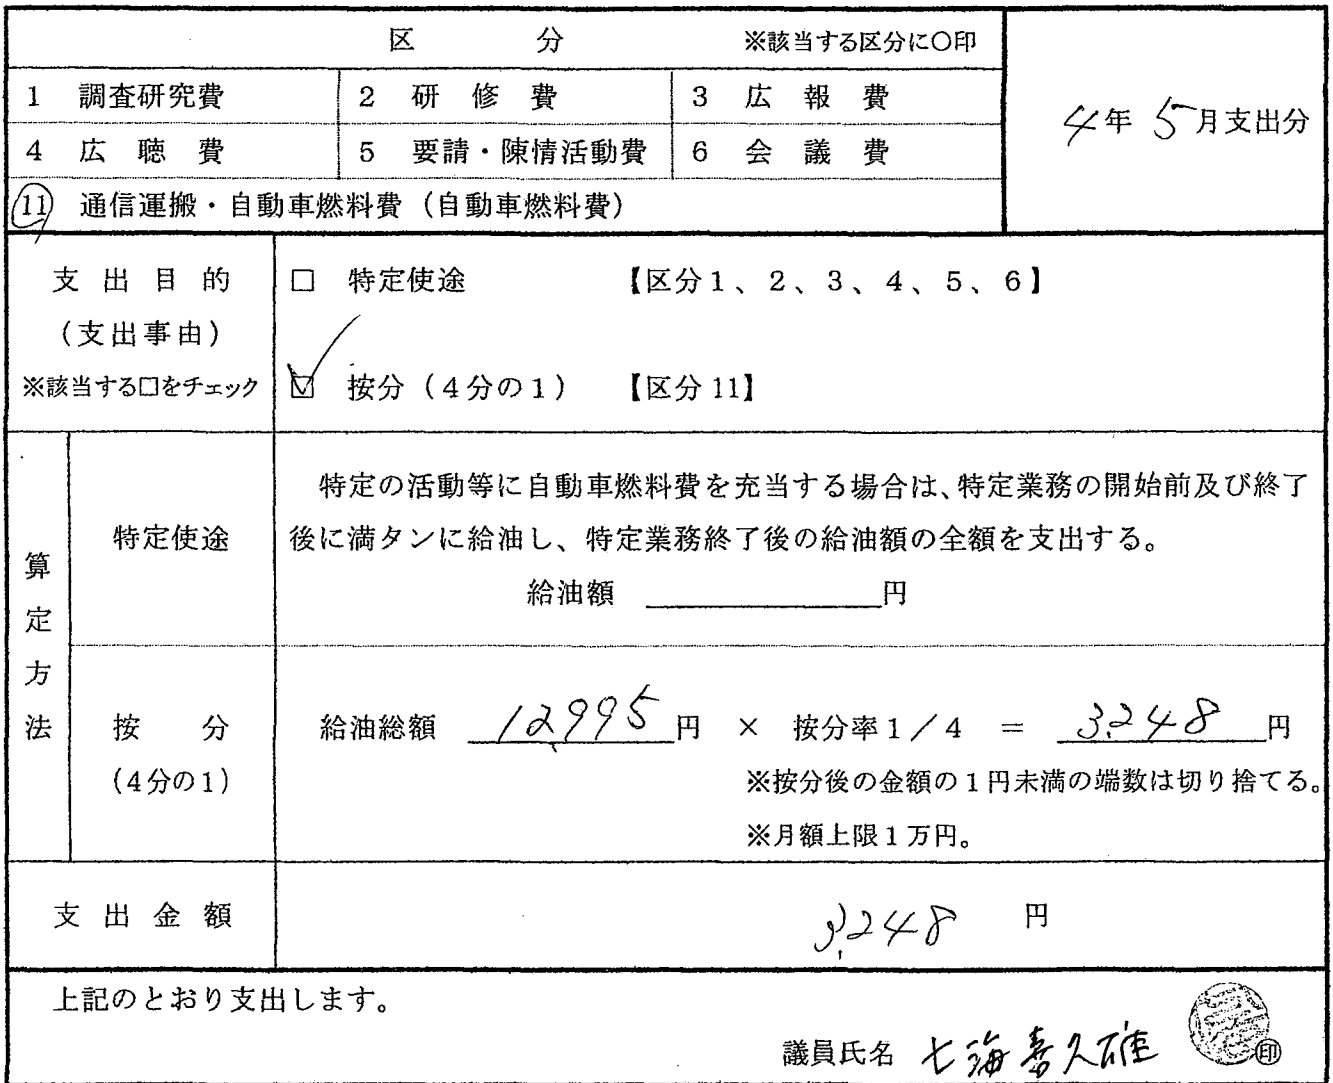 区 分 ※該当する区分に〇印
1 調査研究費 2 研修費 3 広報費
4年 5月支出分
4 広聴費 5 要請・陳情活動費 6 会議費
11 通信運搬・自動車燃料費（自動車燃料費）
支出目的
（支出事由）
※該当する□をチェック
□ 特定使途 【区分1、2、3、4、5、6】
☑ 按分（4分の1） 【区分11】
算定方法
特定使途
特定の活動等に自動車燃料費を充当する場合は、特定業務の開始前及び終了
後に満タンに給油し、特定業務終了後の給油額の全額を支出する。
給油額 円
按分
（4分の1）
給油総額 12,995円 × 按分率1／4 ＝ 3,248円
※按分後の金額の1円未満の端数は切り捨てる。
※月額上限1万円。
支出金額 3,248 円
上記のとおり支出します。
議員氏名 七海喜久雄 印